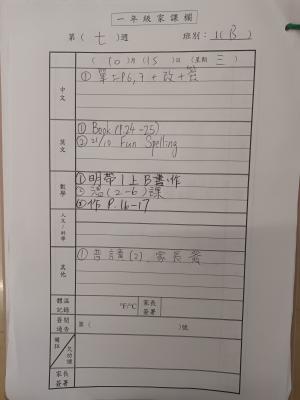 一年級家課欄
第(七)週 班別: 1(B)
(10)月(15)日(星期 三)
中文
① 單二P6,7+改+簽
英文
① Book(P.24-25)
② 21/10 Fun Spelling
數學
① 明帶1上B書,作
② 溫(2-6)課
③ 作P.16-17
人文/科學
其他
① 普讀(2).家長簽
體溫記錄 °F/°C 家長簽署
簽閱通告 第( )號
備註 欠功課
家長簽署